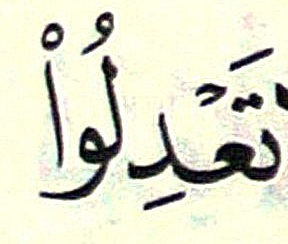 تَعْدِلُواْ